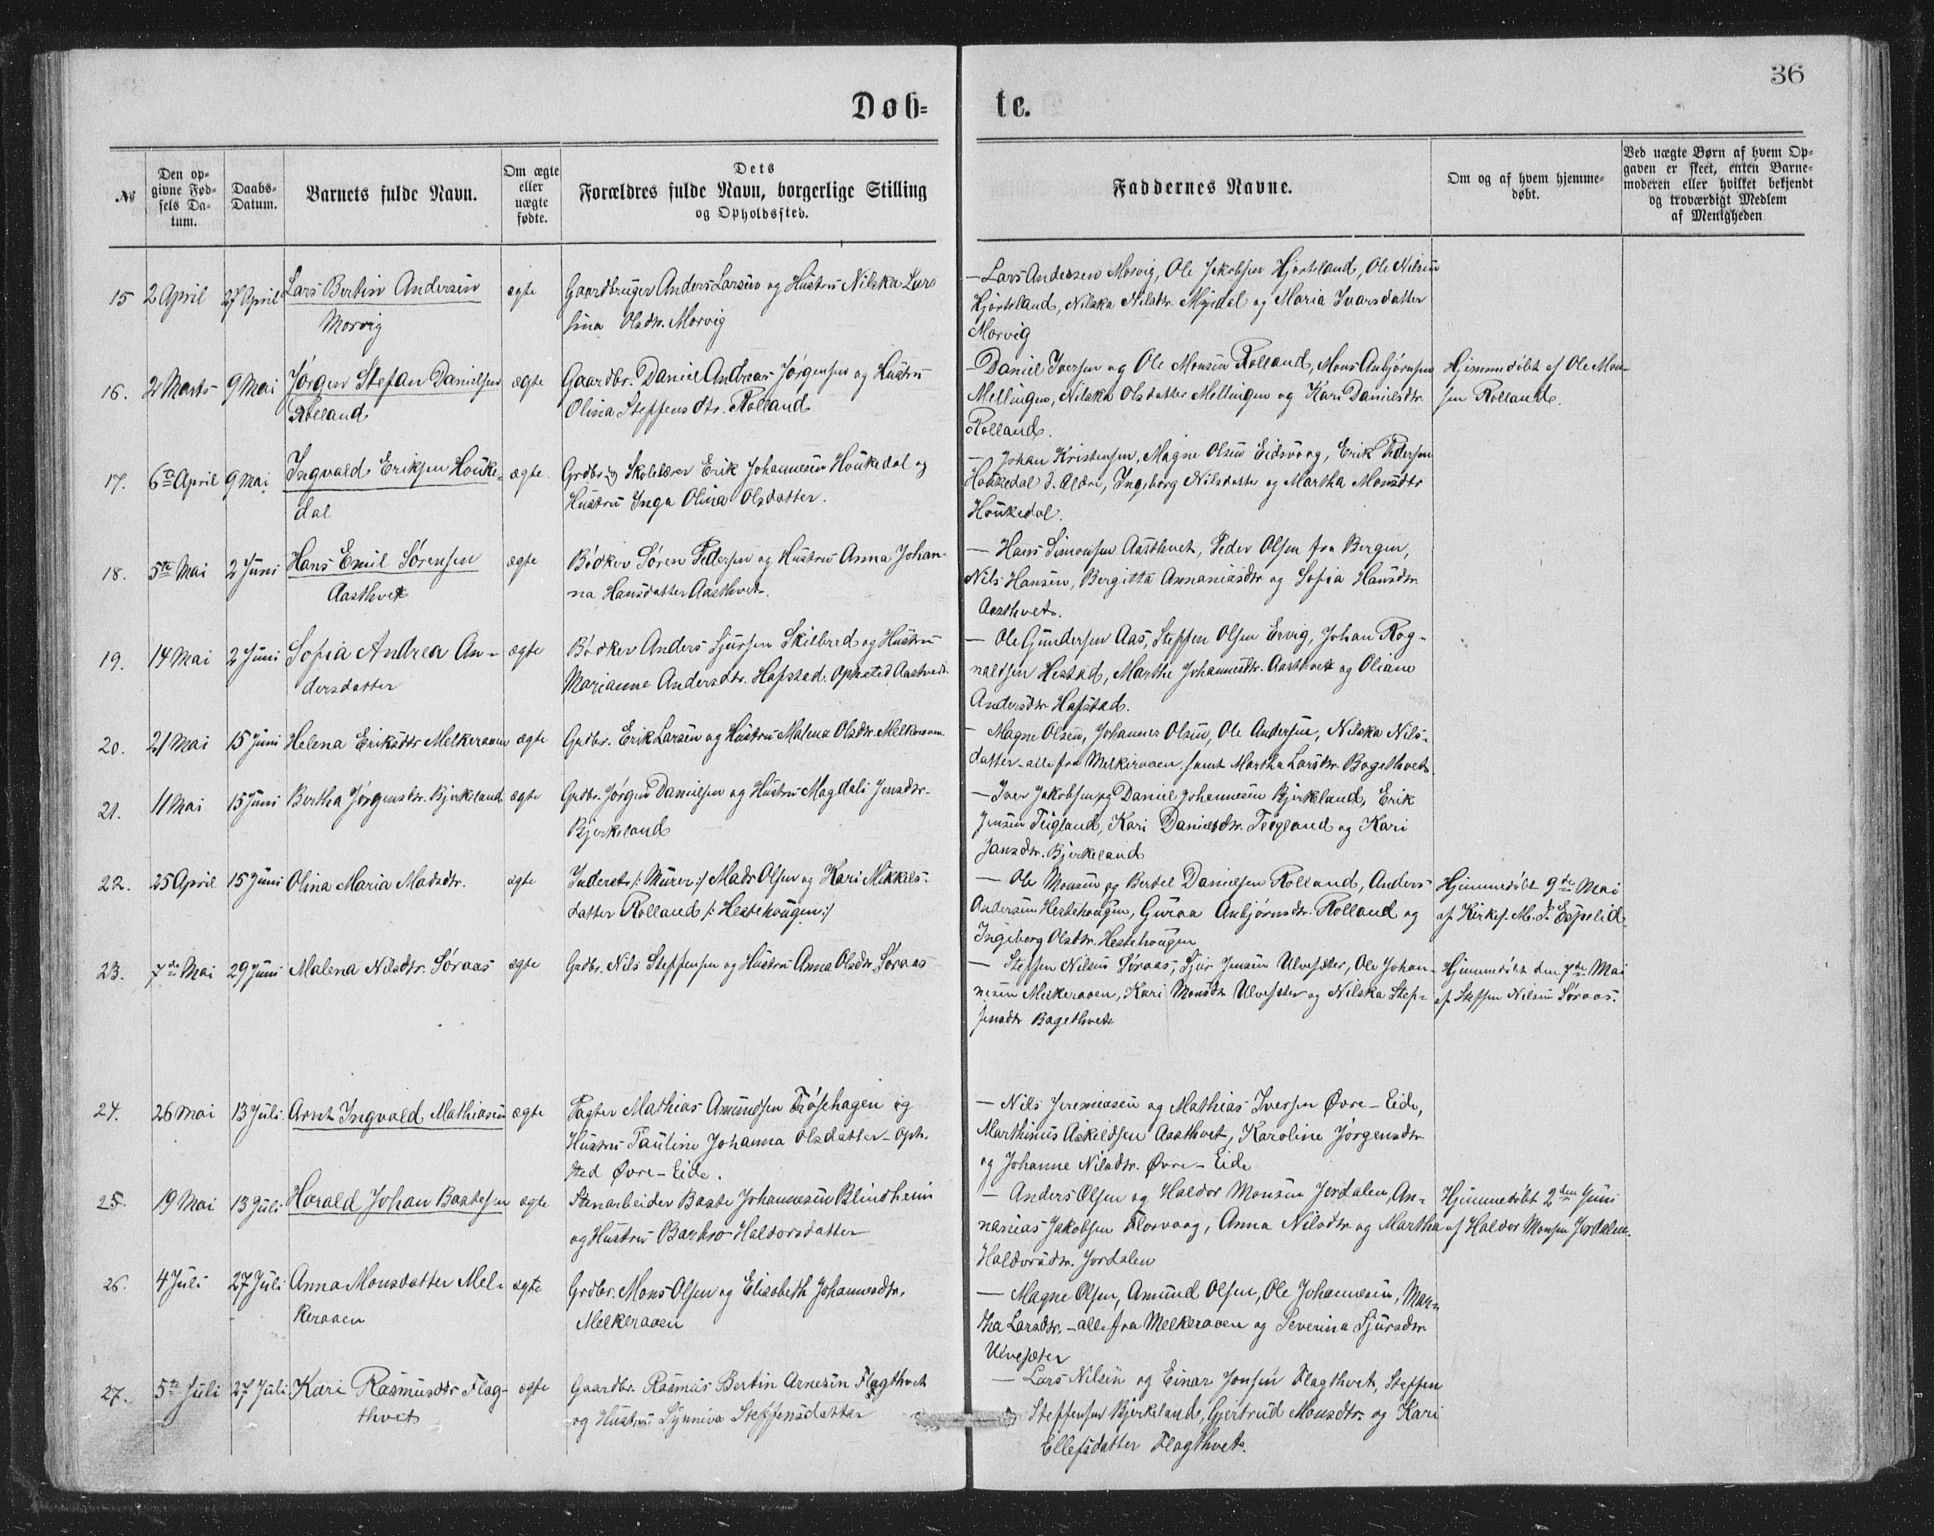 36
Døb-
te.
№
Den op-
givne Fød-
sels Da-
tum.
Daabs-
Datum.
Barnets fulde Navn.
Om ægte
eller
uægte
fødte.
Dets
Forældres fulde Navn, borgerlige Stilling
og Opholdssted.
Faddernes Navne.
Om og af hvem hjemme-
døbt.
Ved uægte Børn af hvem Op-
gaven er skeet, enten Barne-
moderen eller hvilket bekjendt
og troværdigt Medlem
af Menigheden
15 2 April 27 April Lars Bertin Andersen
Morvig
ægte
Gaardbruger Anders Larsen og Hustru Nilska Lars
sina Olsdtr. Morvig
— Lars Andersen Morvig, Ole Jakobsen Hjorteland, Ole Nilsen
Hjorteland, Nilska Nilsdtr. Myrdel og Maria Ivarsdatter
Morvig
16. 2 Marts 9 Mai Jørgen Stefan Danielsen
Rolland
ægte
Gaardbr. Daniel Andreas Jørgensen og Hustru
Olina Steffensdtr. Rolland
— Daniel Iversen og Ole Monsen Rolland, Mons Anbjørnsen
Mellingen, Nilska Olsdatter Mellingen og Kari Danielsdtr.
Rolland.
Hjemmedøbt af Ole Mon-
sen Rolland.
17. 6te April 9 Mai Ingvald Eriksen Houke-
dal
ægte
Grdbr. og Skolelærer Erik Johannesen Houkedal og
Hustru Inga Olina Olsdatter.
— Johan Kristensen, Magne Olsen Eidsvaag, Erik Pedersen
Houkedal d. Ældre, Ingeborg Nilsdatter og Martha Monsdtr
Houkedal.
18. 5te Mai 2 Juni Hans Emil Sørensen
Aasthvet
ægte
Bødker Søren Pedersen og Hustru Anna Johan-
na Hansdatter Aasthvet.
— Hans Simonsen Aasthvet, Peder Olsen fra Bergen,
Nils Hansen, Bergitta Annaniasdtr og Sofia Hansdtr.
Aasthvet.
19. 14 Mai 2 Juni Sofia Andrea An-
dersdatter
ægte
Bødker Anders Sjursen Skilbred og Hustru
Marianne Andersdtr. Hafstad. Ophsted Aasthvedt.
— Ole Gundersen Aas, Steffen Olsen Ervig, Johan Rog-
naldsen Hestad, Marthe Johannesdtr. Aasthvet og Oliane
Andersdtr Hafstad.
20. 21 Mai 15 Juni Helena Eriksdtr Melkeraaen ægte
Grdbr. Erik Larsen og Hustru Malena Olsdtr. Melkeraaen
— Magne Olsen, Johannes Olsen, Ole Andersen, Nilska Nils-
datter - alle fra Melkeraaen. samt Martha Larsdtr. Bogethvet.
21. 11 Mai 15 Juni Bertha Jørgensdtr. Bjerkeland ægte
Grdbr. Jørgen Danielsen og Hustru Magdali Jensdtr.
Bjerkeland
— Iver Jakobsen og Daniel Johannesen Bjerkeland, Erik
Jensen Teigland, Kari Danielsdtr. Teigland og Kari
Jansdtr. Bjerkeland
22. 25 April 15 Juni Olina Maria Madsdtr. ægte
Inderst /: Murer :/ Mads Olsen og Kari Mikkels-
datter Rolland /: Hestehougen :/
— Ole Monsen og Bertel Danielsen Rolland, Anders
Andersen Hestehougen, Guroa Anbjørnsdtr. Rolland og
Ingeborg Olsdtr. Hestehougen
Hjemmedøbt 9de Mai
af Kirkes. M. Espelid.
23. 7de Mai 29 Juni Malena Nilsdtr. Søraas ægte
Grdbr. Nils Steffensen og Hustru Anna Olsdtr. Søraas
— Steffen Nilsen Søraas, Sjur Jensen Ulvesæter, Ole Johan-
nesen Melkeraaen, Kari Monsdtr Ulvesæter og Nilska Stef-
fensdtr Bogethvet
Hjemmedøbt den 7de Mai
af Steffen Nilsen Søraas.
24. 26 Mai 13 Juli Arnt Ingvald Mathiasen ægte
Pagter Mathias Amundsen Frøsehagen og
Hustru Pauline Johanna Olsdatter - Oph.
sted Øvre-Eide.
— Nils Jeremiasen og Mathias Iversen Øvre-Eide,
Marthinus Askildsen Aasthvet, Karoline Jørgensdtr
og Johanne Nilsdtr. Øvre-Eide
25. 19 Mai 13 Juli Harald Johan Baatesen ægte
Stenarbeider Baate Johannesen Blindheim
og Hustru Barbro Haldorsdatter
— Anders Olsen og Haldor Monsen Jordalen, An-
nanias Jakobsen Florvaag, Anna Nilsdtr og Martha
Haldorsdtr. Jordalen
Hjemmedøbt 2den Juni
af Haldor Monsen Jordalen.
26. 4 Juli 27 Juli Anna Monsdatter Mel-
keraaen
ægte
Grdbr. Mons Olsen og Elisabeth Johannesdtr.
Melkeraaen
— Magne Olsen, Amund Olsen, Ole Johannesen, Mar-
tha Larsdtr. - alle fra Melkeraaen og Severina Sjursdtr
Ulvesæter
27. 5te Juli 27 Juli Kari Rasmusdtr Flag-
thvet
ægte
Gaardbr. Rasmus Bertin Arnesen Flagthvet
og Hustru Synniva Steffensdatter
— Lars Nilsen og Einar Jonsen Flagthvet, Steffen
Steffensen Bjerkeland, Gjertrud Monsdtr. og Kari
Ellefsdatter Flagthvet.